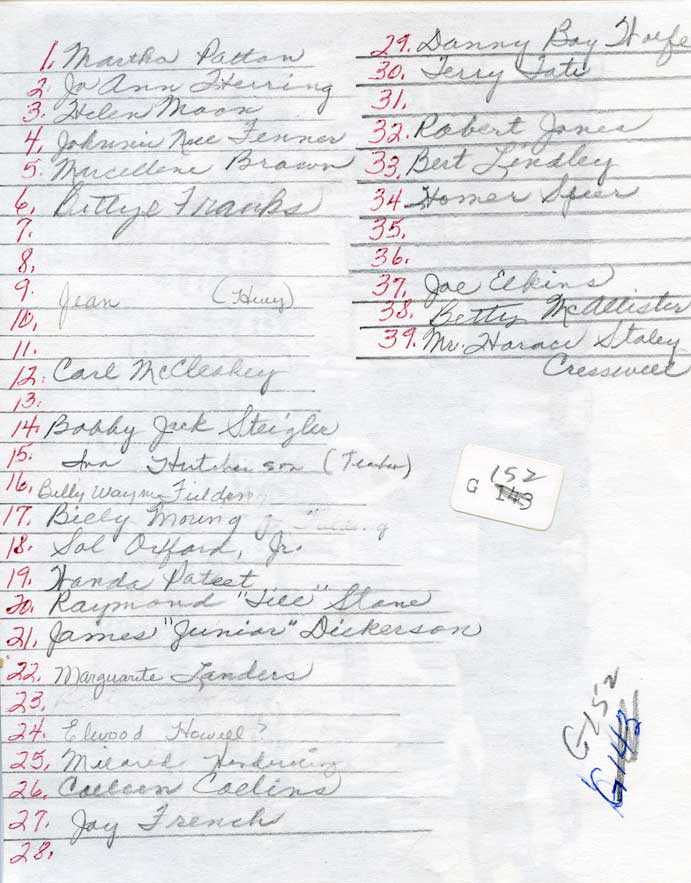 1. Martha Patton
2. Jo Ann Herring
3. Helen Moon
4. Johnnie Nell Fenner
5. Marcellene Brown
6. Bettye Franks
7.
8.
9. Jean (Huey)
10.
11.
12. Carl McCleskey
13.
14. Bobby Jack Steigler
15. Ina Hutcherson (Teacher)
16. Billy Wayne Fielden
17. Billy Moring
18. Sol Orfford, Jr.
19. Wanda Pateet
20. Raymond "Till" Stone
21. James "Junior" Dickerson
22. Marguarite Landers
23.
24. Elwood Howell?
25. Mildred
26. Colleen Collins
27. Joy French
28.
29. Danny Boy Wolfe
30. Terry Tate
31.
32. Robert Jones
33. Bert Lindley
34 Homer Spier
35.
36.
37. Joe Elkins
38. Betty McAllister
39. Mr. Horace Staley
Cresswell
152
G 143
G152
G143